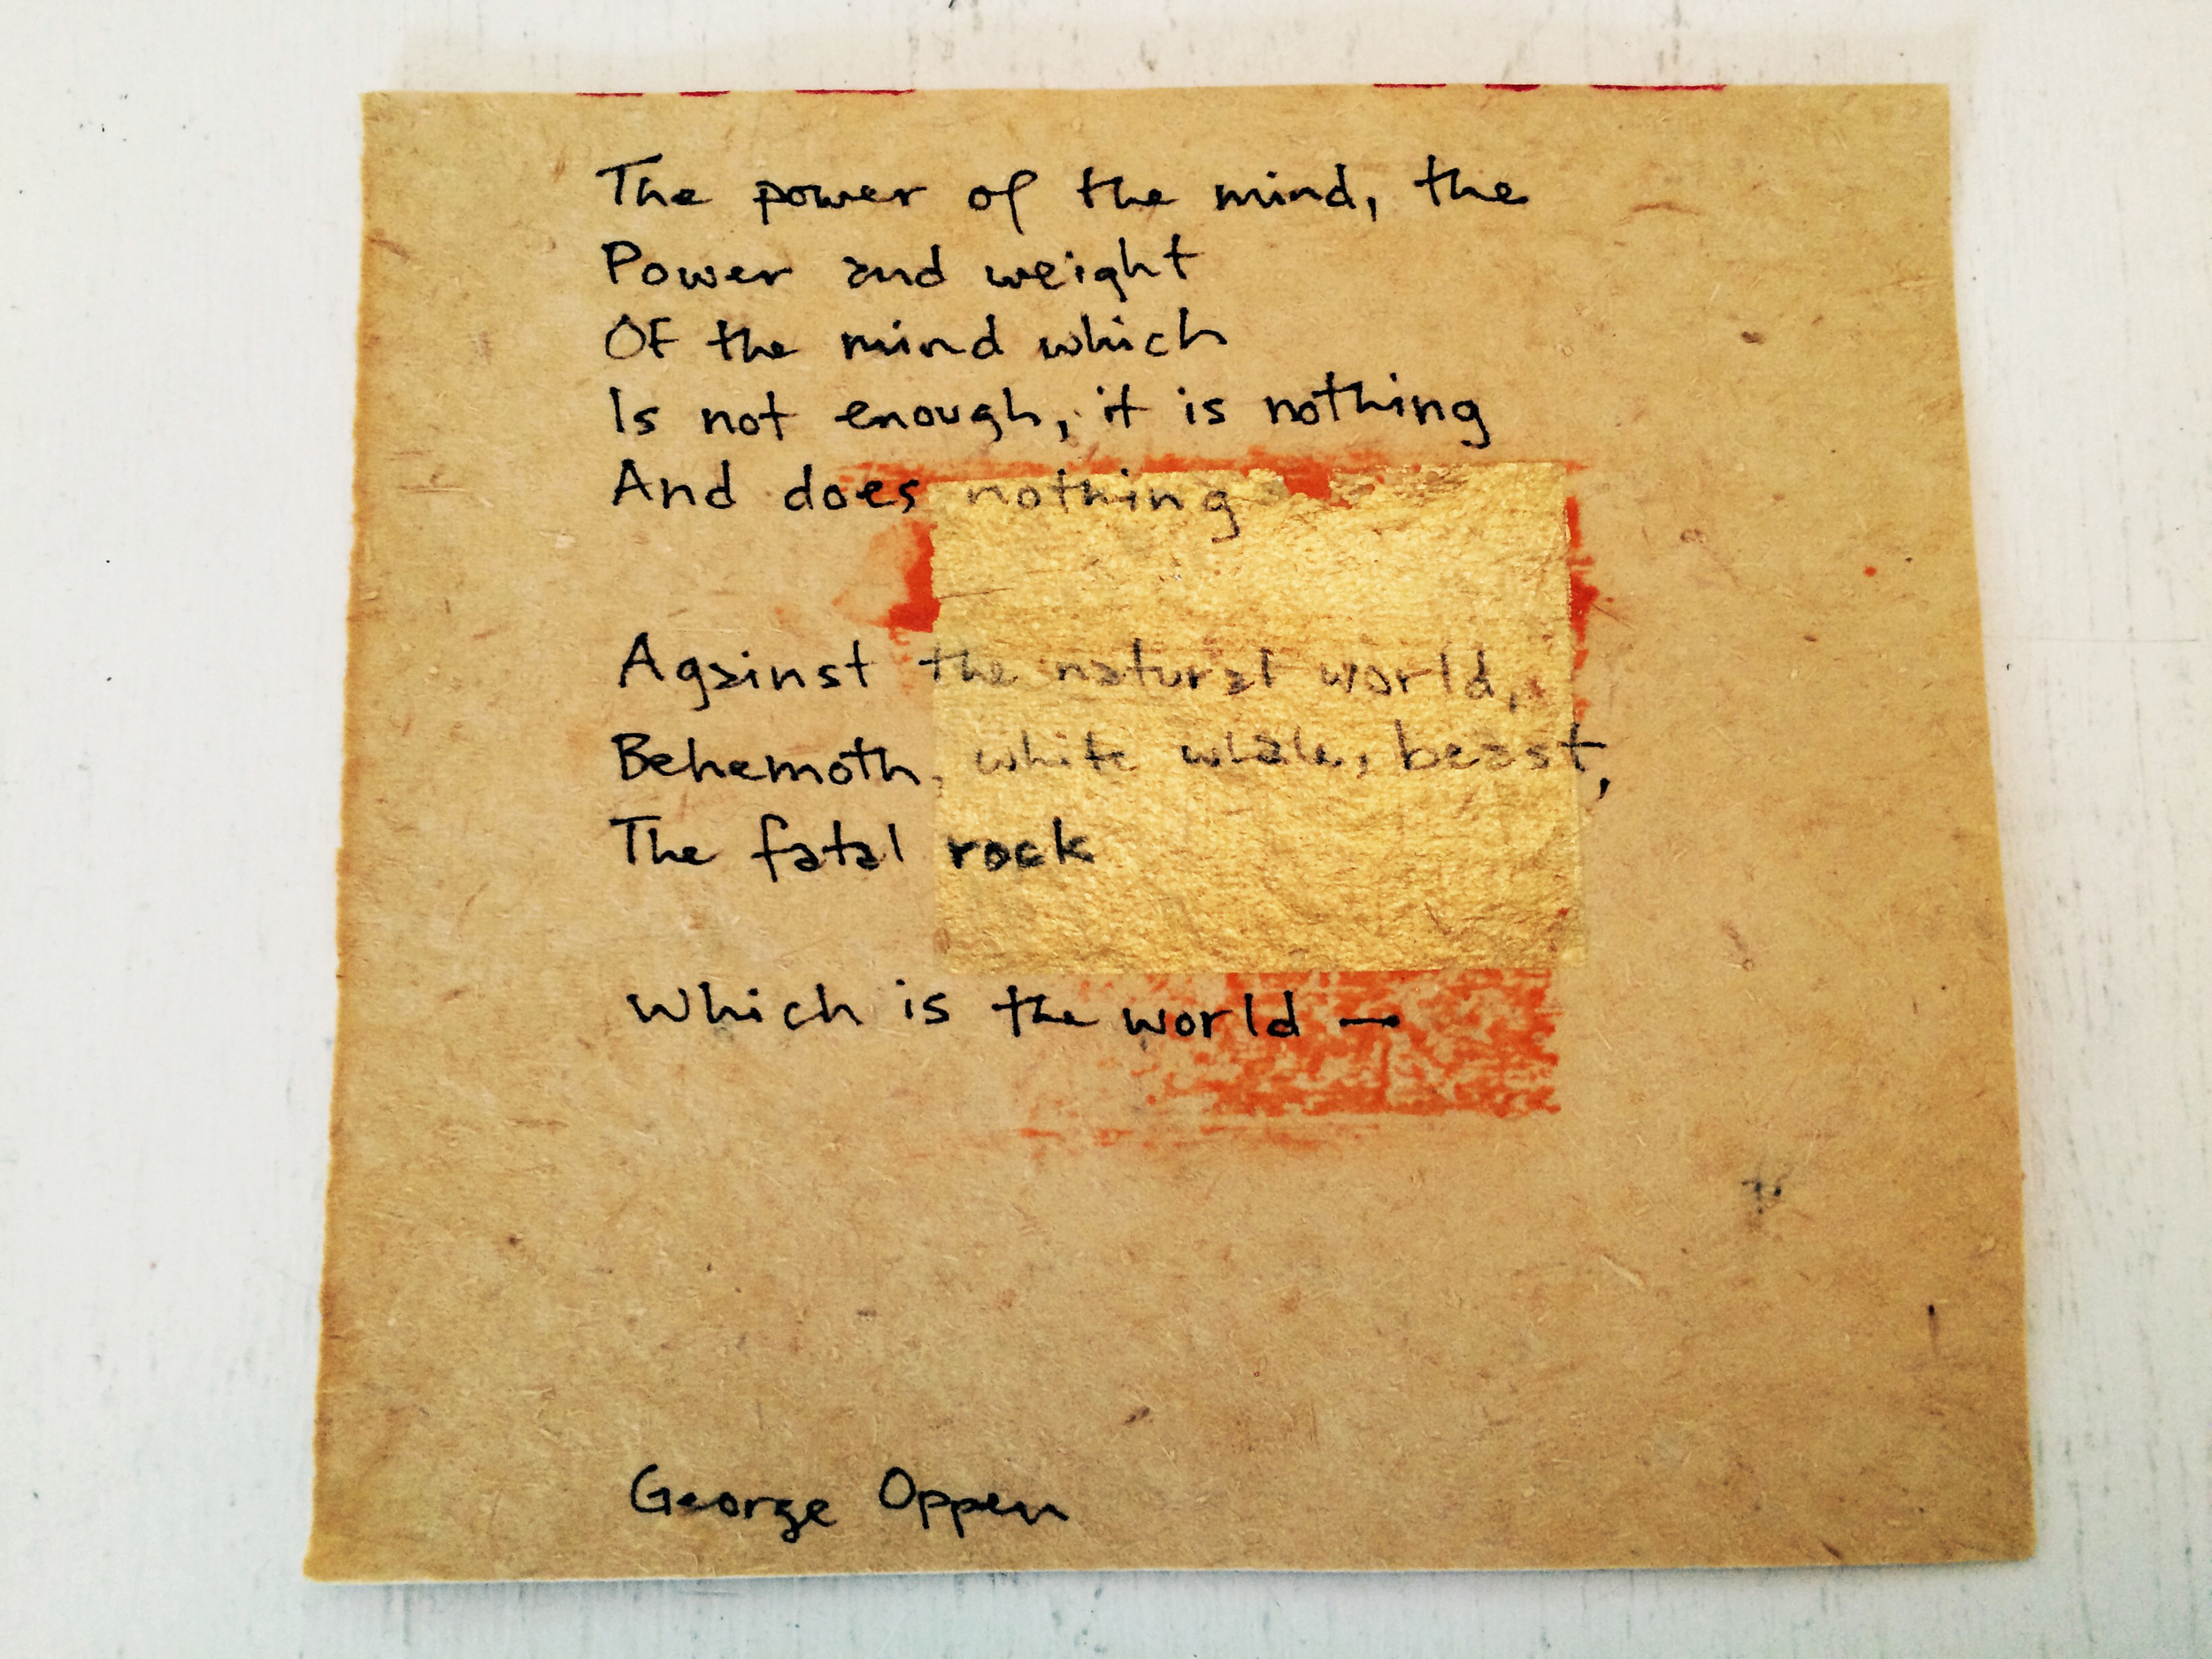 The power of the mind, the
Power and weight
Of the mind which
Is not enough, it is nothing
And does nothing
Against the natural world,
Behemoth, white whale, beast,
The fatal rock
Which is the world —
George Oppen